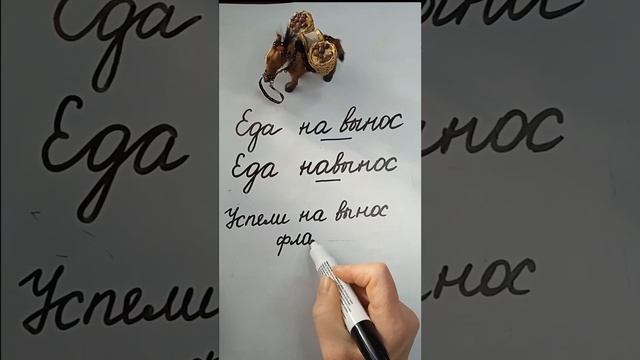 Еда на вынос
Еда навынос
Успели на вынос
фла